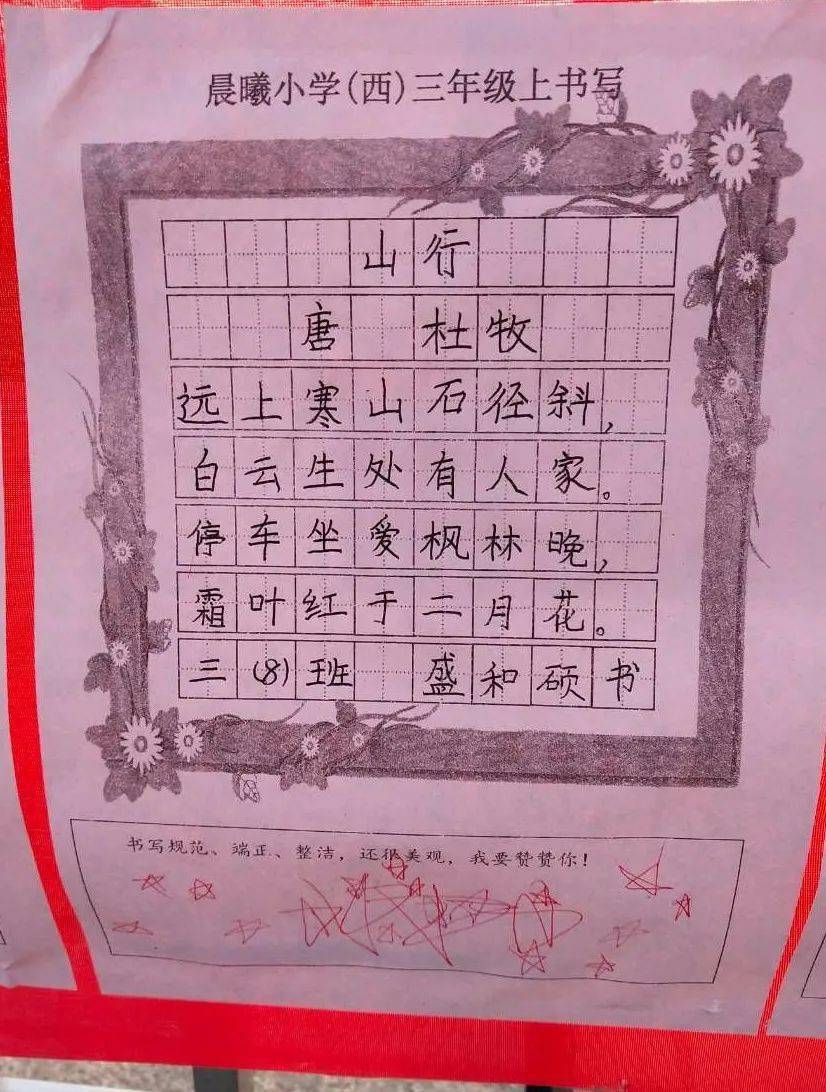 晨曦小学(西)三年级上书写
山行
唐 杜牧
远上寒山石径斜,
白云生处有人家。
停车坐爱枫林晚,
霜叶红于二月花。
三(8)班 盛和硕书
书写规范、端正、整洁，还很美观，我要赞赞你！